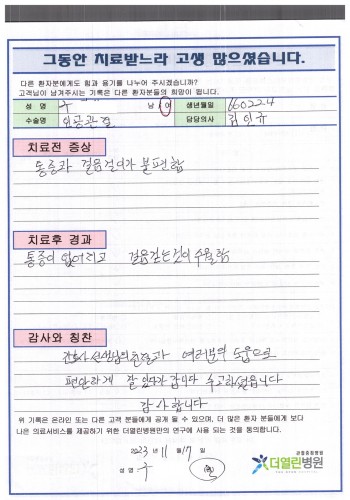 그동안 치료받느라 고생 많으셨습니다.
다른 환자분에게도 힘과 용기를 나누어 주시겠습니까?
고객님이 남겨주시는 기록은 다른 환자분들의 희망이 됩니다.
성 명 구 남 여 생년월일 660224
수술명 인공관절 담당의사 김인규
치료전 증상
통증과 걸음걸이가 불편함
치료후 경과
통증이 없어지고 걸음걷는것이 수월함
감사와 칭찬
간호사 선생님의 친절과 여러분의 도움으로
편안하게 잘 있다가 갑니다 수고하셨습니다
감사합니다
위 기록은 온라인 또는 다른 고객 분들에게 공개 될 수 있으며, 더 많은 환자 분들에게 보다
나은 의료서비스를 제공하기 위한 더열린병원만의 연구에 사용 되는 것을 동의합니다.
2023 년 11 월 17 일
성 명 구
관절중점병원
더열린병원